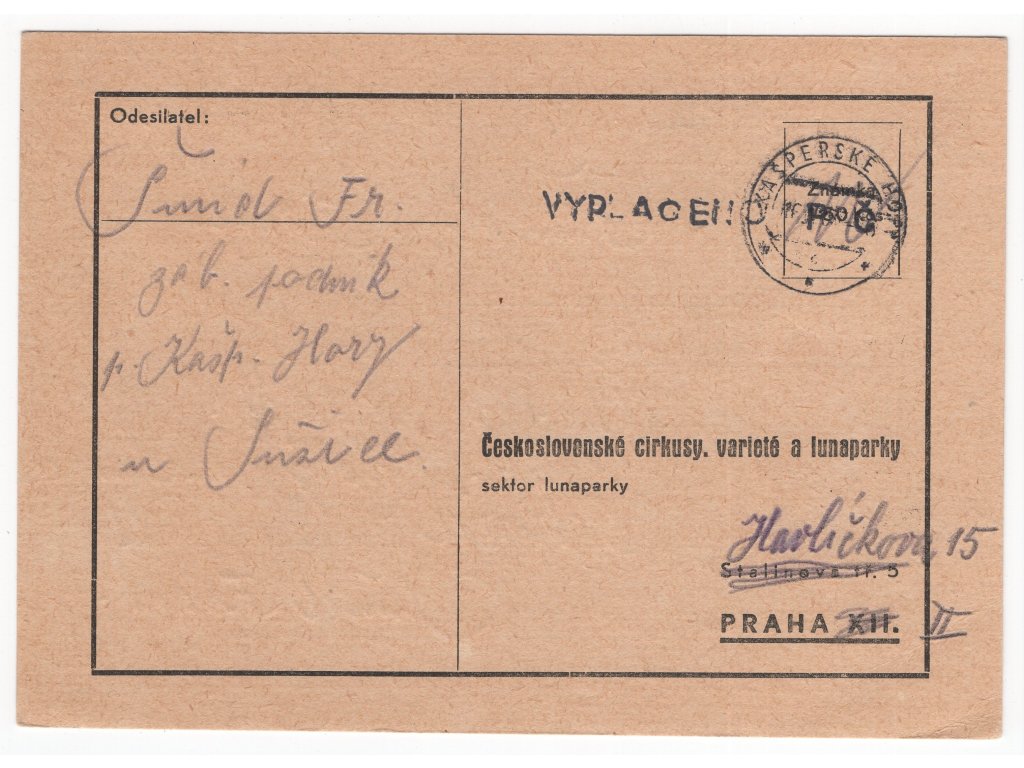 Odesílatel:
Šmíd Fr.
záb. podnik
p. Kašp. Hory
u Sušice
VYPLACENO
KAŠPERSKÉ HORY
Známka
Kčs
Československé cirkusy, varieté a lunaparky
sektor lunaparky
Havlíčkova 15
Stalinova tř. 5
PRAHA XII. II